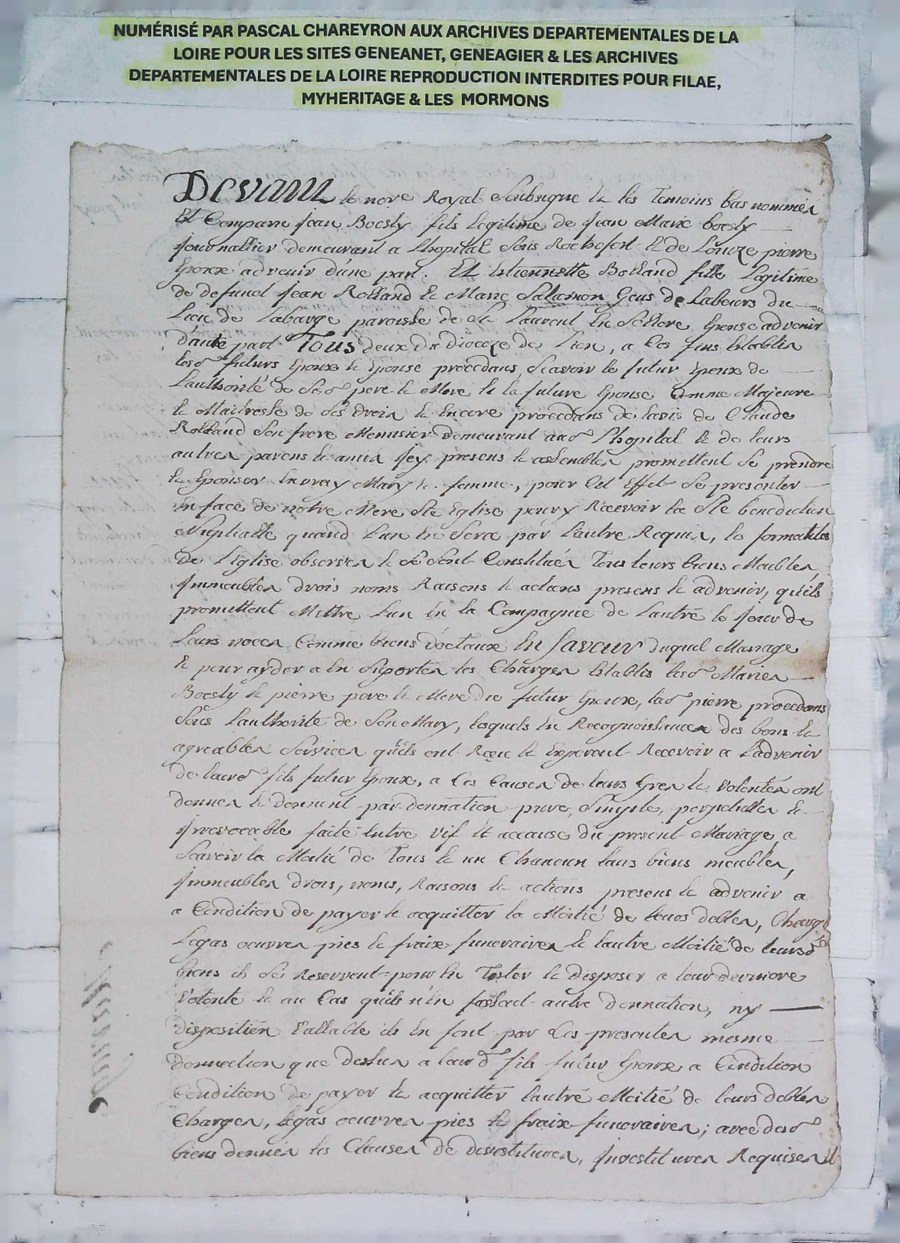 NUMÉRISÉ PAR PASCAL CHAREYRON AUX ARCHIVES DEPARTEMENTALES DE LA
LOIRE POUR LES SITES GENEANET, GENEAGIER & LES ARCHIVES
DEPARTEMENTALES DE LA LOIRE REPRODUCTION INTERDITES POUR FILAE,
MYHERITAGE & LES MORMONS
Devant le nore Royal Soubsigne & les Temoins bas nommés
Et Comparu Jean Boesly fils legitime de Jean Marie boesly
Journallier demeurant a Lhopital sous Rochefort & de Louize pierre
Epoux advenir d'une part. Et Estiennette Rolland fille Legitime
de defunct Jean Rolland & Marie Salamon Gens de Labeurs du
Lieu de Labarge paroisse de St Laurent En Solore Epouse advenir
d'autre part Tous deux du Dioceze de Lion, a Ces fins Etablis
lesd futurs Epoux & Epouse procedans, scavoir le futur Epoux de
Lauthorité de sesd pere & Mere & la future Epouse Comme Majeure
& Maitresse de ses Droits & Encore procedans de lavis de Claude
Rolland Son frere Menuisier demeurant aud Lhopital & de leurs
autres parens & amis Icy presens & assemblés promettent se prendre
& Epouser En vray Mary & femme, pour Cet Effet se presenter
En face de notre Mere Ste Eglise pour y Recevoir la Ste benediction
Nuptialle quand L'un En Sera par L'autre Requis, les formalités
de L'Eglise observées & se sont Constitués Tous leurs biens Meubles
Immeubles droits noms Raisons & actions presens & advenir, qu'ils
promettent Mettre L'un En la Compagnie de L'autre le Jour de
Leurs noces Comme biens doctaux En faveur duquel Mariage
& pour ayder a En Suporter les Charges Etablis lesd Mariés
Boesly & pierre pere & Mere du futur Epoux, lad pierre procedans
Sous Lauthorité de Son Mary, lesquels En Recognoissance des bons &
agreables Services qu'ils ont Receu & Esperent Recevoir a L'advenir
de leurd fils futur Epoux, a Ces Causes de leurs Grés & volontés ont
donnés & donnent par donnation pure, Simple, perpetuelle &
Irrevocable faite Entre vif & accause du present Mariage, a
Scavoir la Moitié de Tous & un Chancun leurs biens meubles,
Immeubles droits, noms, Raisons & actions presens & advenir a
a Condition de payer & acquitter la Moitié de leurs debtes, Charges
Legas oeuvres pies & fraix funeraires & l'autre Moitié de leursd
biens ils se Reservent pour En Tester & desposer a leur derniere
volonté & au Cas qu'ils n'en fassent autre donnation, ny
disposition vallable ils En font par Ces presentes mesme
donnation que dessus a leurd fils futur Epoux a Condition
Condition de payer & acquitter lautre Moitié de leurs debtes
Charges, legas oeuvres pies & fraix funeraires; avec desd
biens donnés les Clauses de devestitures, Investitures Requises &